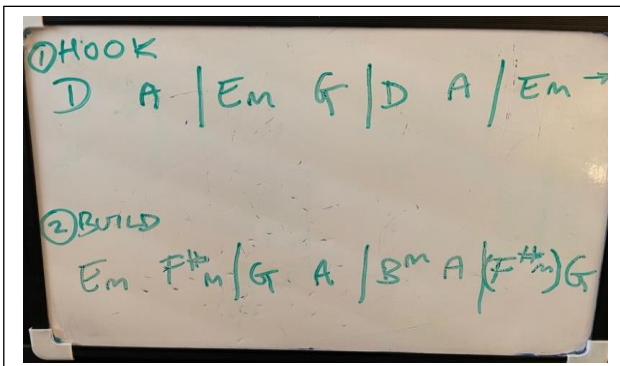 ① HOOK
D A | Em G | D A | Em →
② BUILD
Em F#m | G A | Bm A | (F#m) G